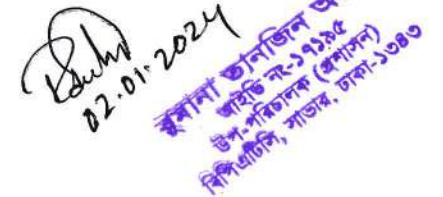 02.01.2024
রুমানা তানজিন অ
আইডি নং-১৭১৯৫
উপ-পরিচালক (প্রশাসন)
বিপিএটিসি, সাভার, ঢাকা-১৩৪৩